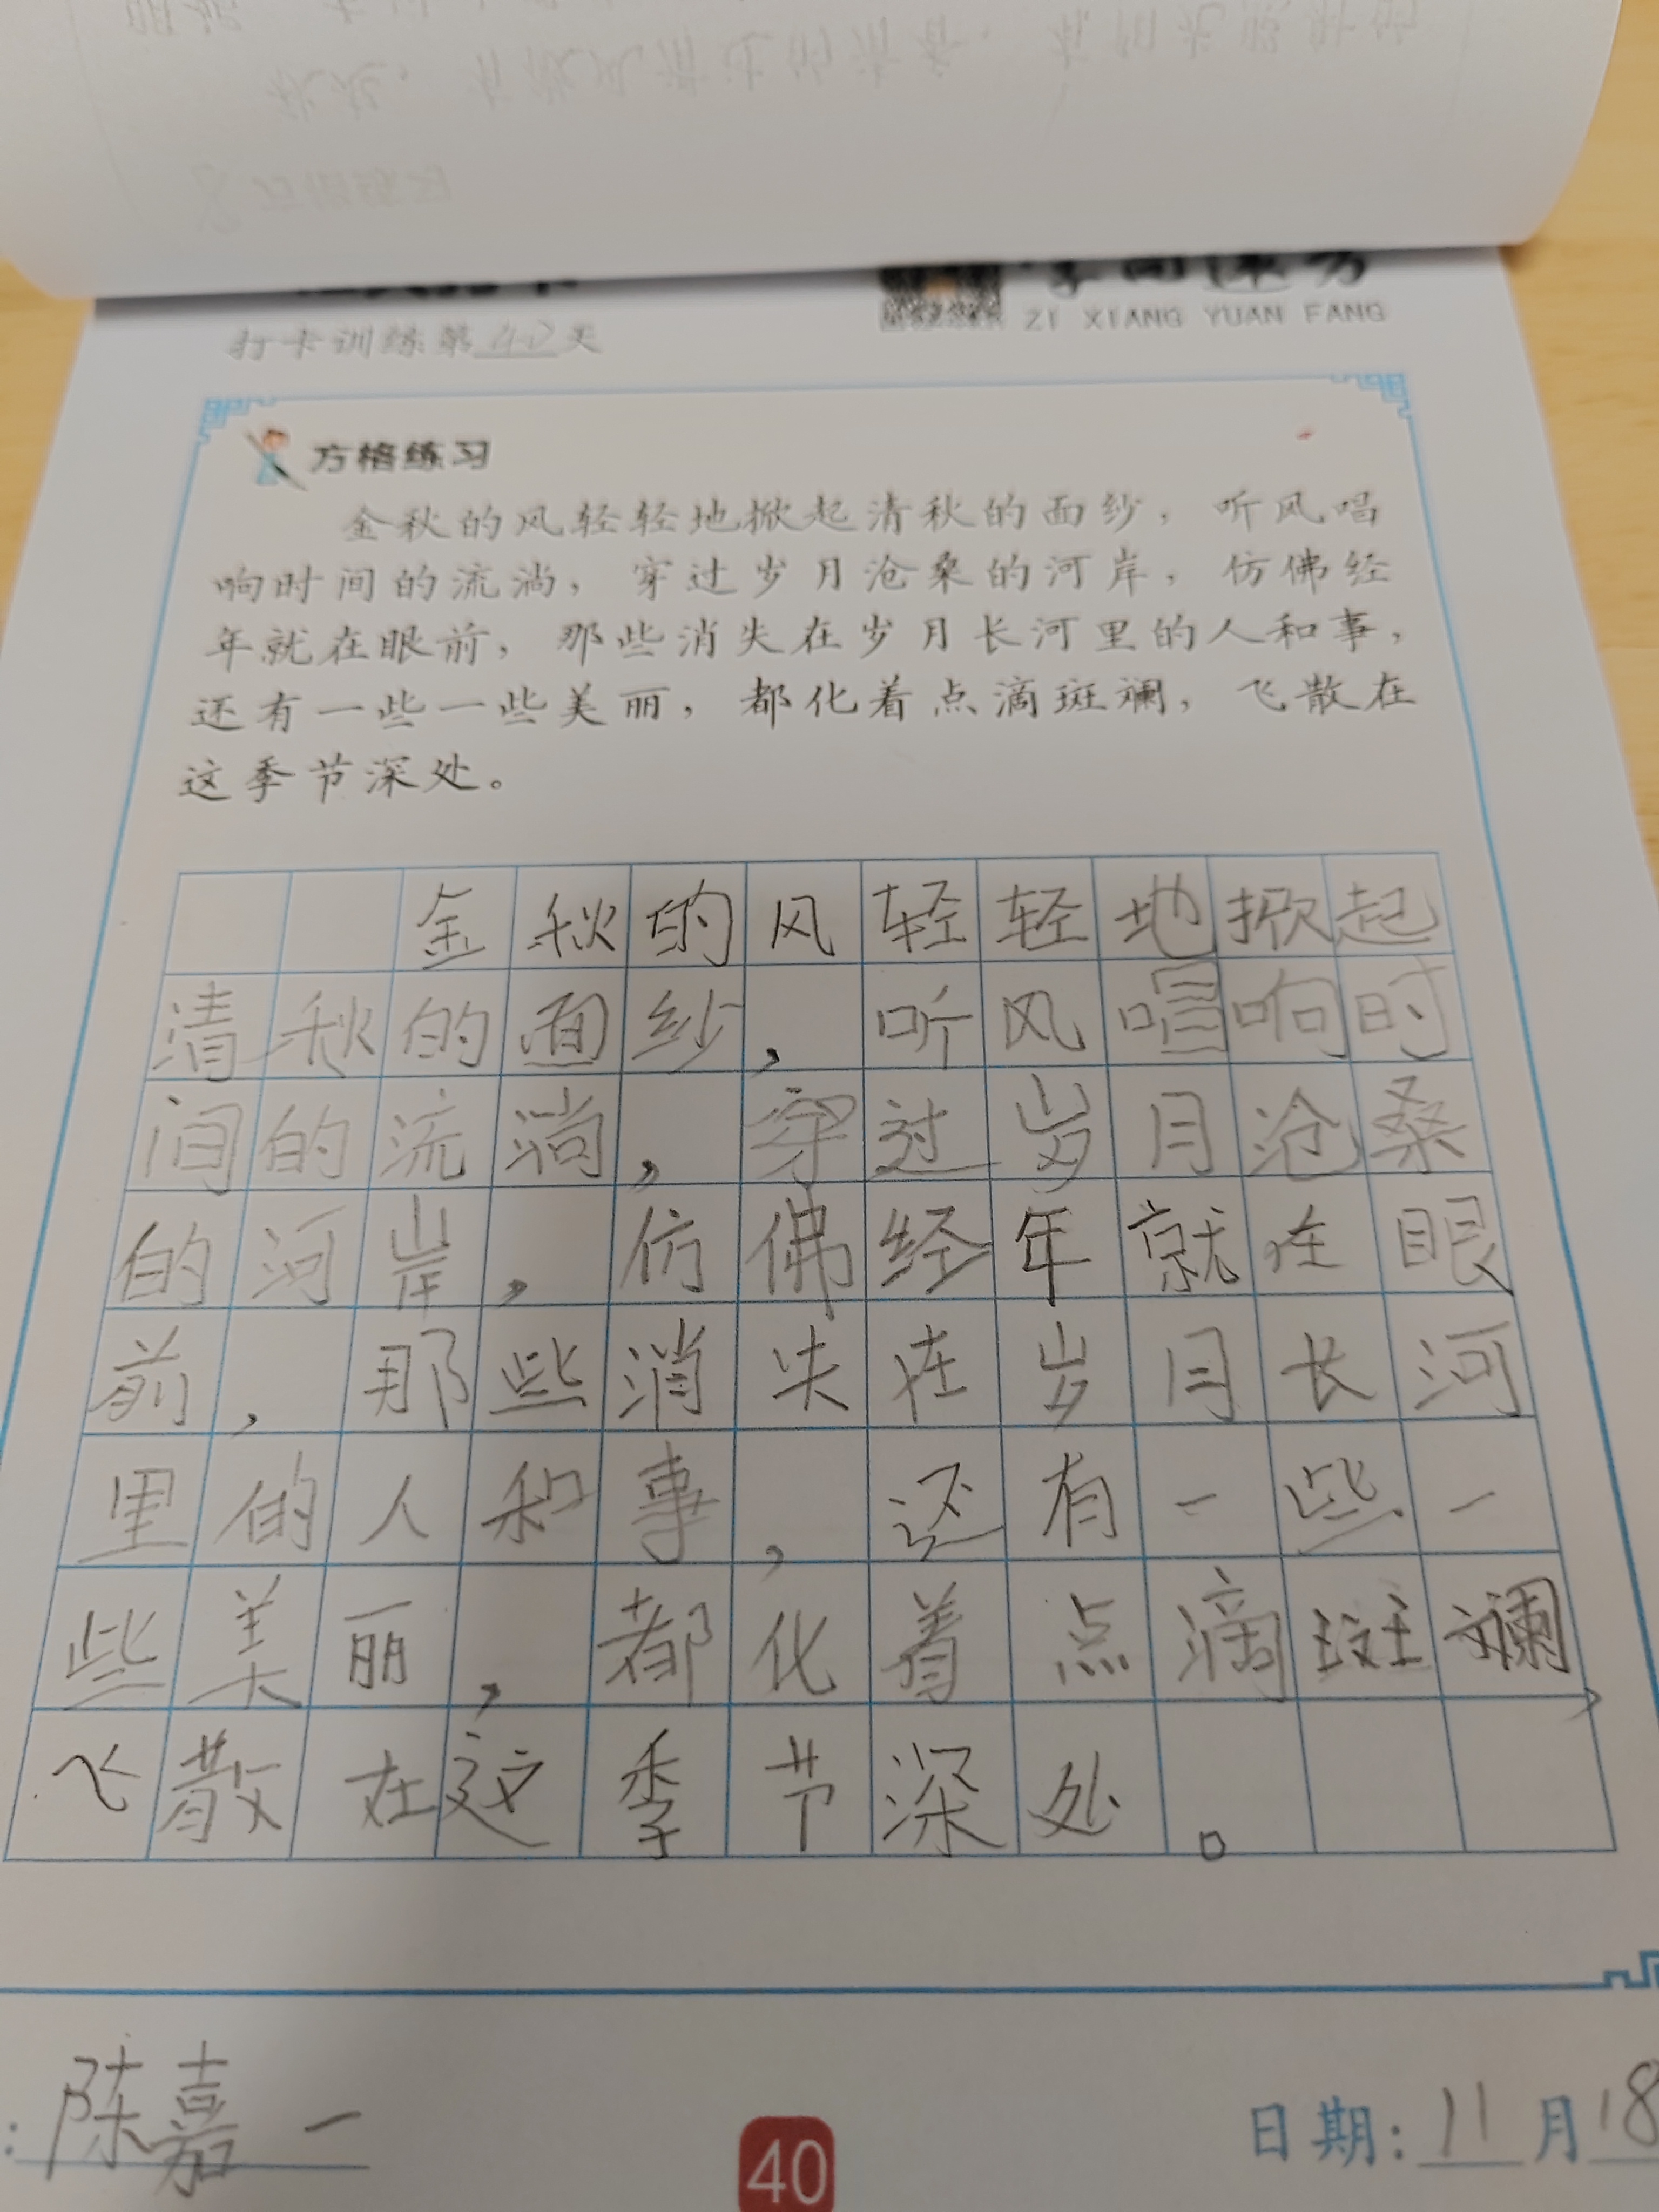 ZI XIANG YUAN FANG
打卡训练第40天
方格练习
金秋的风轻轻地掀起清秋的面纱，听风唱
响时间的流淌，穿过岁月沧桑的河岸，仿佛经
年就在眼前，那些消失在岁月长河里的人和事，
还有一些一些美丽，都化着点滴斑斓，飞散在
这季节深处。
金秋的风轻轻地掀起
清秋的面纱，听风喧响时
间的流淌，穿过岁月沧桑
的河岸，仿佛经年就在眼
前，那些消失在岁月长河
里的人和事，还有一些一
些美丽，都化着点滴斑斓，
飞散在这季节深处。
：陈嘉一
40
日期：11月18